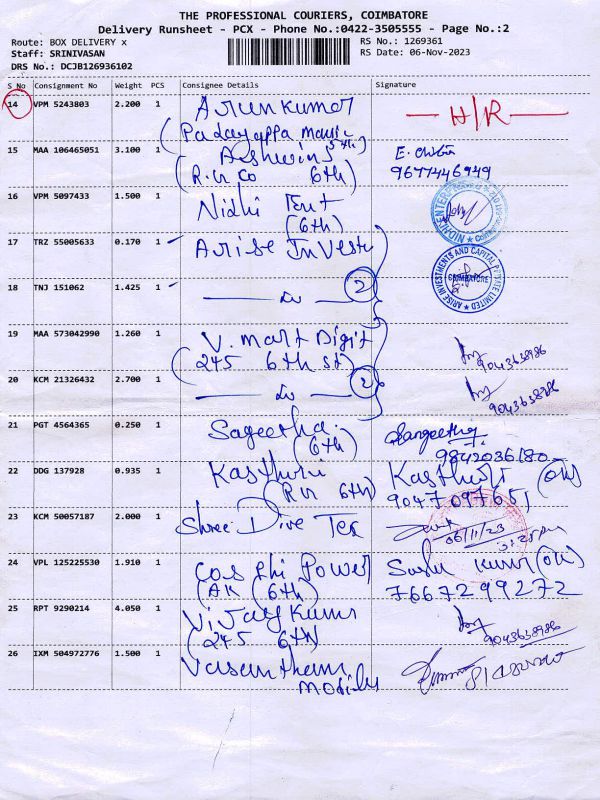 THE PROFESSIONAL COURIERS, COIMBATORE
Delivery Runsheet - PCX - Phone No.:0422-3505555 - Page No.:2
Route: BOX DELIVERY x
RS No.: 1269361
Staff: SRINIVASAN
RS Date: 06-Nov-2023
DRS No.: DCJB126936102
S No Consignment No Weight PCS Consignee Details Signature
14 VPM 5243803 2.200 1 Arunkumar H/R
(Padayappa
15 MAA 106465051 3.100 1 Ashwins
(R.in co 6th) 9677446949
16 VPM 5097433 1.500 1 Nidhi Tent
(6th)
17 TRZ 55005633 0.170 1 Arise Invest
ARISE INVESTMENTS AND CAPITAL PRIVATE LIMITED
COIMBATORE
18 TNJ 151062 1.425 1 2
19 MAA 573042990 1.260 1 V. mart Digit
(245 6th st) 9043638986
20 KCM 21326432 2.700 1 2
9043638986
21 PGT 4564365 0.250 1 Sageetha. Sangeetha
(6th) 9842036180
22 DDG 137928 0.935 1 Kasthuri Kasthuri
(R in 6th) 9047097651
23 KCM 50057187 2.000 1 Shree Dive Tex
06/11/23
24 VPL 125225530 1.910 1 Cos phi Power
(AK (6th) 7667299272
25 RPT 9290214 4.050 1 Vijaykumar
(245 6th) 9043638986
26 IXM 504972776 1.500 1 Vasantham
mobiles